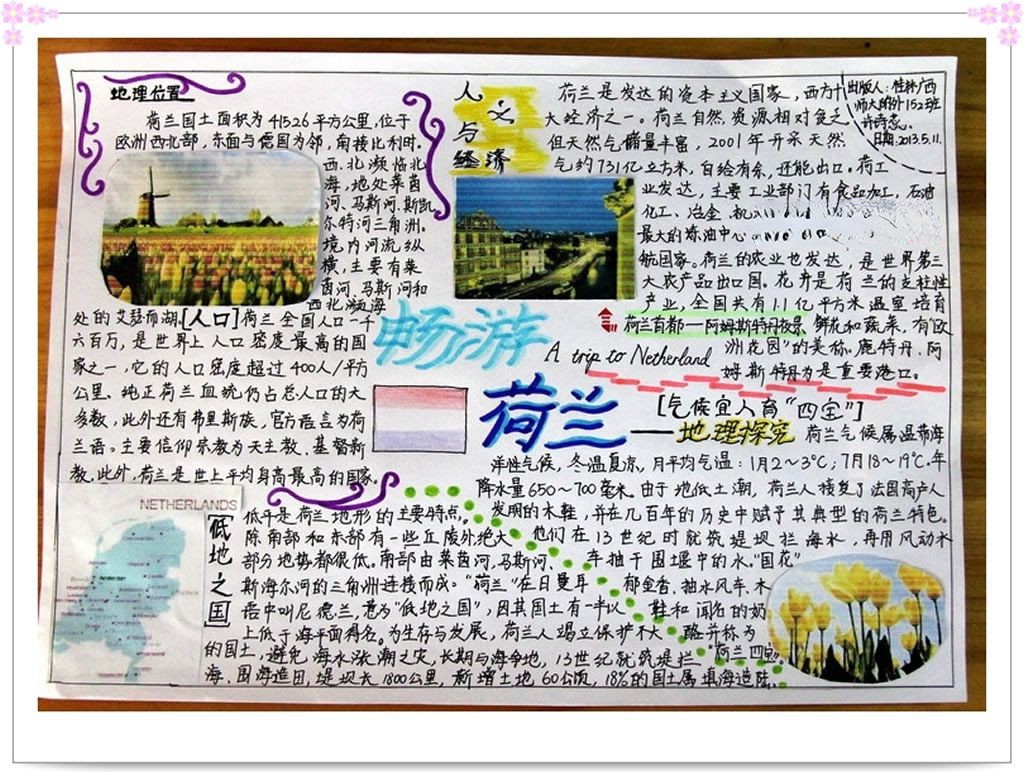 地理位置
荷兰国土面积为41526平方公里,位于
欧洲西北部,东面与德国为邻,南接比利时。
西、北濒临北
海,地处莱茵
河、马斯河、斯凯
尔特河三角洲。
境内河流纵
横,主要有莱
茵河、马斯河和
西北濒海
处的艾瑟而湖。[人口]荷兰全国人口一千
六百万,是世界上人口密度最高的国
家之一,它的人口密度超过400人/平方
公里。纯正荷兰血统仍占总人口的大
多数,此外还有弗里斯族,官方语言为荷
兰语。主要信仰宗教为天主教、基督新
教。此外,荷兰是世上平均身高最高的国家。
NETHERLANDS
人文
与
经济
荷兰是发达的资本主义国家,西方十
大经济之一。荷兰自然资源相对贫乏
但天然气储量丰富,2001年开采天然
气约731亿立方米,自给有余,还能出口。荷工
业发达,主要工业部门有食品加工,石油
化工、冶金、机
最大的炼油中心
航国家。荷兰的农业也发达,是世界第三
大农产品出口国。花卉是荷兰的支柱性
产业,全国共有1.1亿平方米温室培育
鲜花和蔬菜,有"欧
洲花园"的美称。鹿特丹、阿
姆斯特丹为是重要港口。
出版人:桂林广西
师大附外152班
日期:2013.5.11.
荷兰首都—阿姆斯特丹夜景
畅游
A trip to Netherland
荷兰
[气候宜人育"四宝"]
——地理探究
荷兰气候属温带海
洋性气候,冬温夏凉,月平均气温:1月2~3℃;7月18~19℃.年
降水量650~700毫米。由于地低土潮,荷兰人接受了法国高卢人
发明的木鞋,并在几百年的历史中赋予其典型的荷兰特色。
他们在13世纪时就筑堤坝拦海水,再用风动水
车抽干围堰中的水。"国花"
郁金香、抽水风车、木
鞋和闻名的奶
酪并称为
"荷兰四宝"
低地之国
低平是荷兰地形的主要特点。
除南部和东部有一些丘陵外,绝大
部分地势都很低。南部由莱茵河、马斯河、
斯海尔河的三角洲连接而成。"荷兰"在日曼耳
语中叫尼德兰,意为"低地之国",因其国土有一半以
上低于海平面得名。为生存与发展,荷兰人竭立保护不大
的国土,避免海水涨潮之灾,长期与海争地,13世纪就筑堤拦
海、围海造田,堤坝长1800公里,新增土地60公顷,18%的国土属填海造陆。